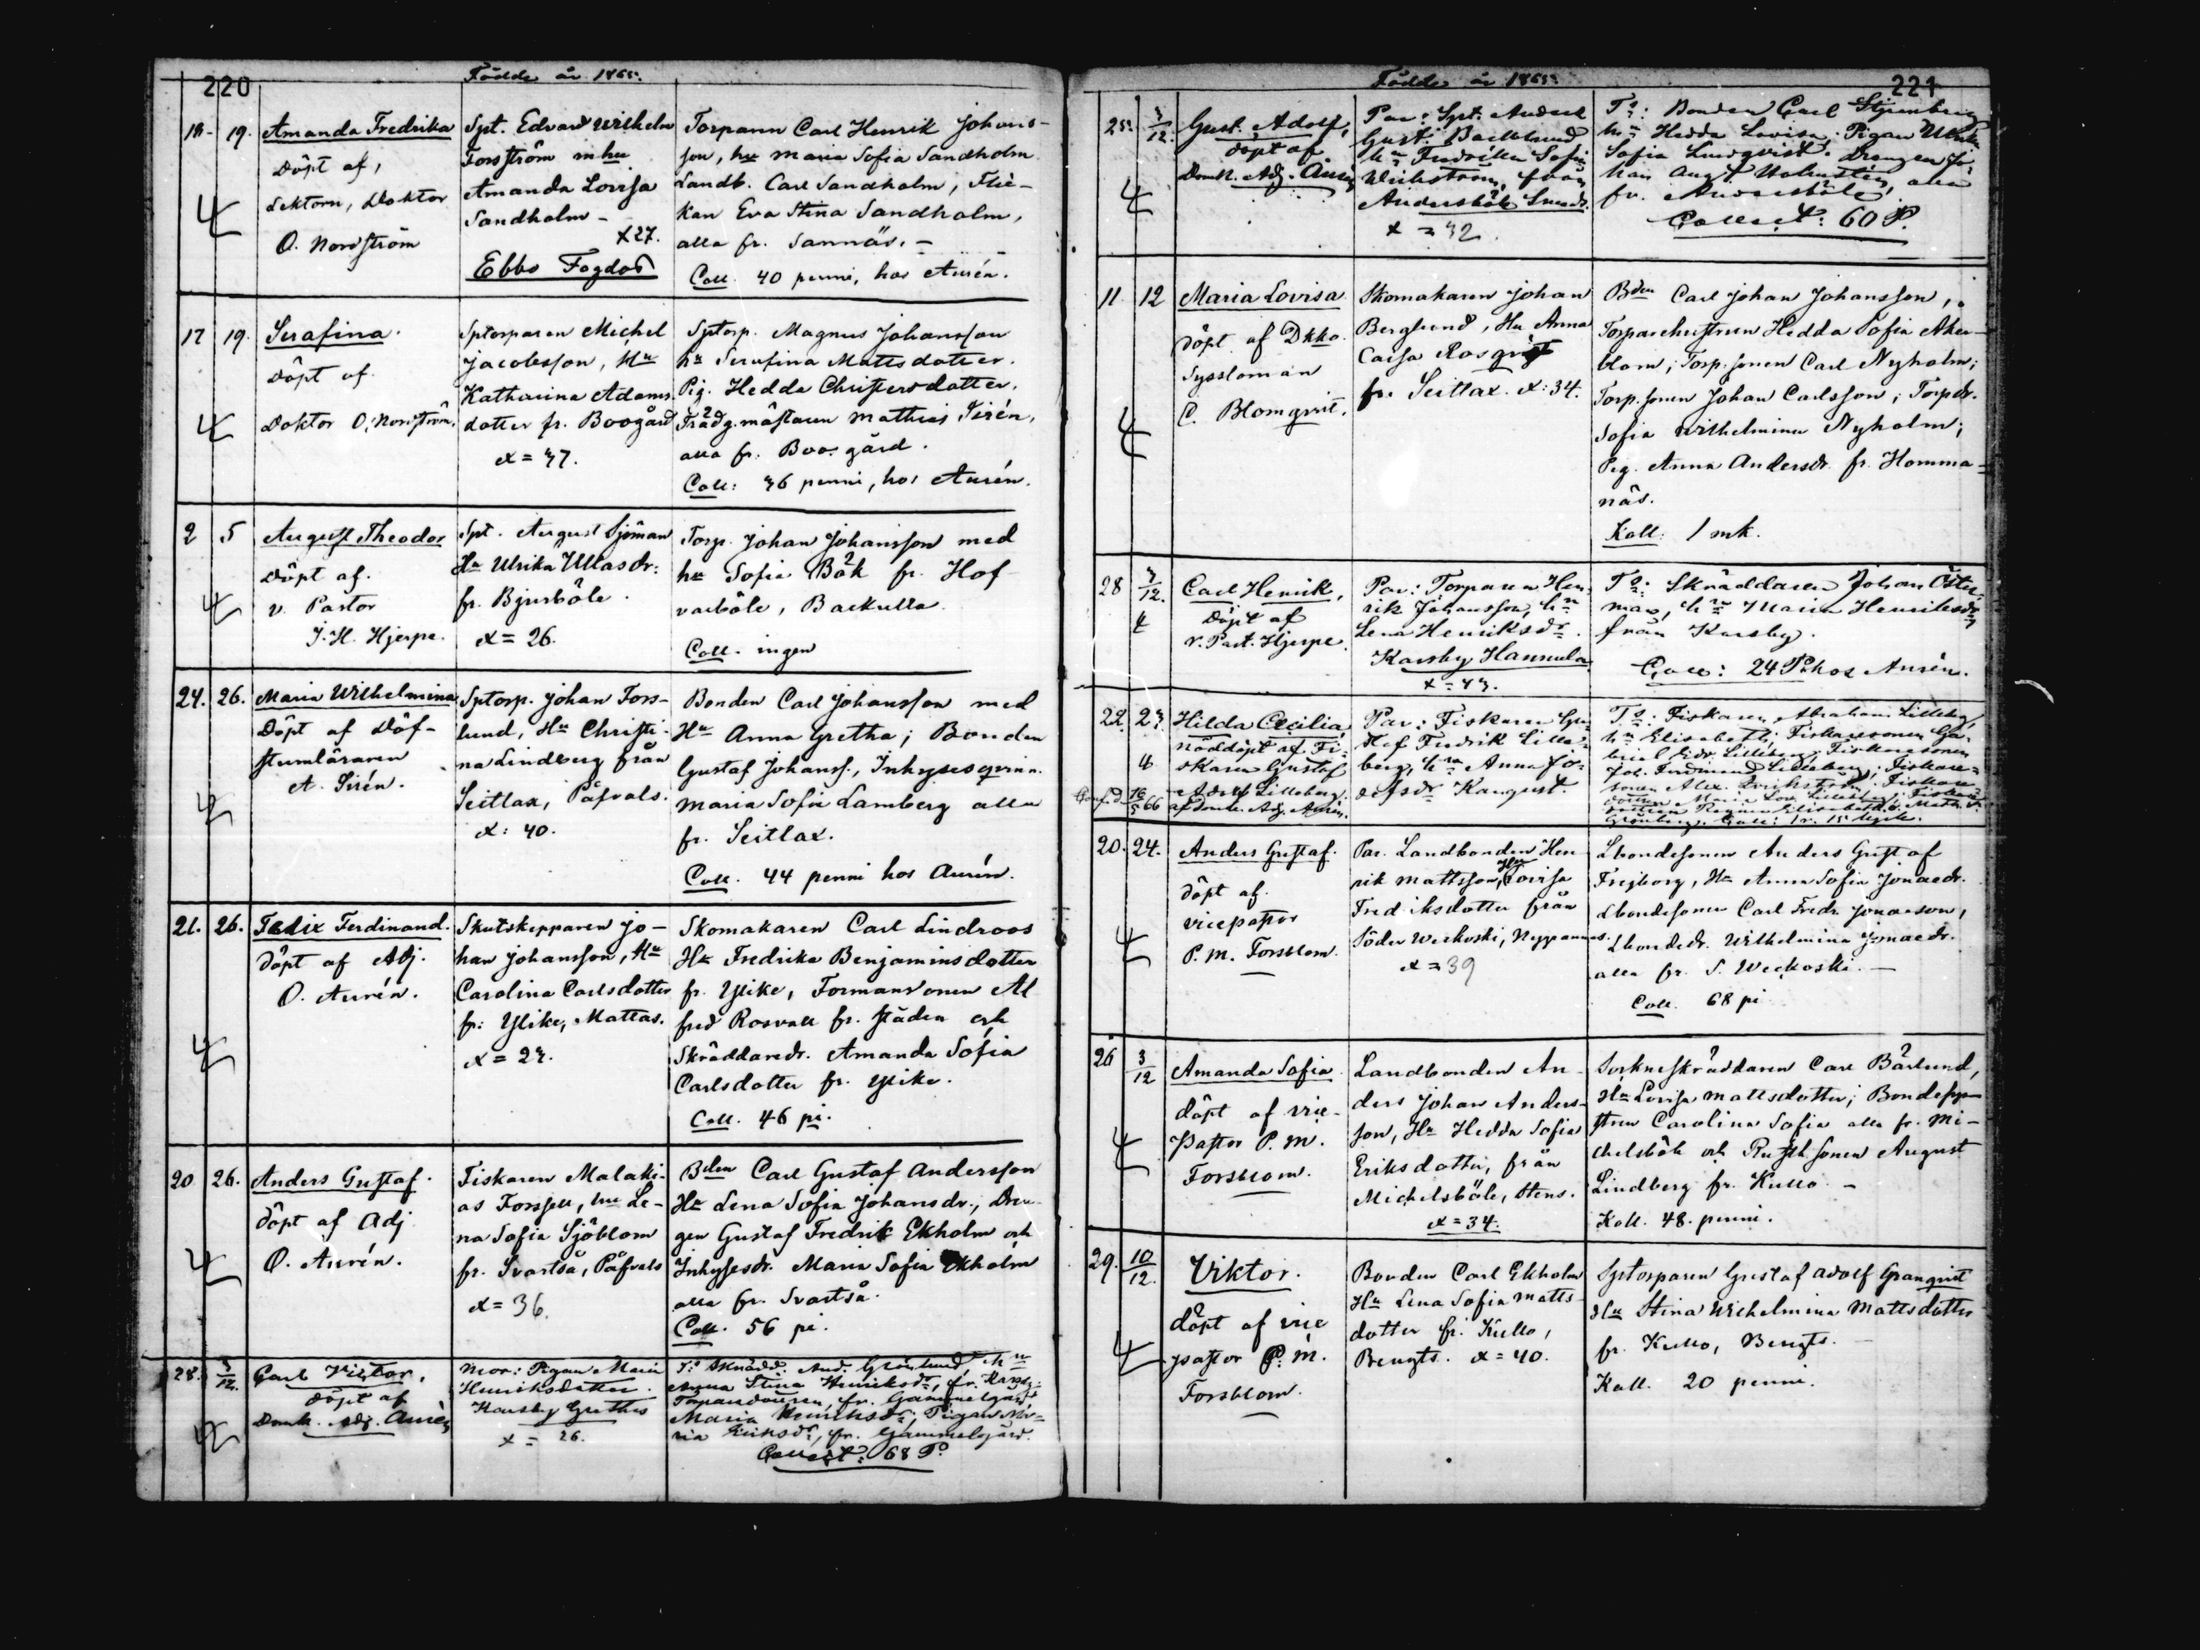 220
Födde år 1865.
18. 19. Amanda Fredrika
Döpt af,
Lektorn, Doktor
O. Nordström
Spt. Edvard Wilhelm
Forsström m hu
Amanda Lovisa
Sandholm –
x 27.
Ebbo Fogdas
Torparen Carl Henrik Johans-
son, hu Maria Sofia Sandholm
Landb. Carl Sandholm, Flic-
kan Eva Stina Sandholm,
alla fr. Sannäs. –
Coll. 40 penni, hos Aurén.
17 19. Serafina.
Döpt af
Doktor O. Nordström.
Sptorparen Michel
Jacobsson, Hu
Katharina Adams
dotter fr. Boogård
x = 37.
Sptorp. Magnus Johansson
hu Serafina Mattsdotter.
Pig. Hedda Christersdotter.
Trädg.mästaren Mathias Sirén,
alla fr. Boogård.
Coll: 36 penni, hos Aurén.
2 5 August Theodor
Döpt af.
v. Pastor
J. H. Hjerpe.
Spt. August Sjöman
Hu Ulrika Ullasdr.
fr. Bjurböle.
x = 26.
Torp. Johan Johansson med
hu Sofia Bök fr. Hof
varböle, Backulla.
Coll. ingen
24. 26. Maria Wilhelmina
Döpt af Döf-
stumläraren
A. Sirén.
Sptorp. Johan Fors-
lund, Hu Christi-
na Lindberg från
Seitlax, Påfvals.
x: 40.
Bonden Carl Johansson med
Hu Anna Gretha; Bonden
Gustaf Johanss., Inhysesqvinn.
Maria Sofia Lamberg alla
fr. Seitlax.
Coll. 44 penni hos Aurén.
21. 26. Felix Ferdinand.
döpt af Adj.
O. Aurén.
Skutskepparen Jo-
han Johansson, Hu
Carolina Carlsdotter
fr: Ylike, Mattas.
x = 23.
Skomakaren Carl Lindroos
Hu Fredrika Benjaminsdotter
fr. Ylike, Formanssonen Al
fred Rosvall fr. staden och
Skräddaredr. Amanda Sofia
Carlsdotter fr. Ylike.
Coll. 46 pi.
20 26. Anders Gustaf.
döpt af Adj
O. Aurén.
Fiskaren Malaki-
as Forssell, hu Le-
na Sofia Sjöblom
fr. Svartså, Påfvals
x = 36.
Bden Carl Gustaf Andersson
Hu Lena Sofia Johansdr., Dren-
gen Gustaf Fredrik Ekholm och
Inhysesdr. Maria Sofia Ekholm
alla fr. Svartså.
Coll. 56 pi.
28. 3/12. Carl Victor,
döpt af
Domk. Adj. Aurén
Mor: Pigan Maria
Henriksdotter.
Karsby Grethas
x = 26.
T: Skrädd. And. Grönlund, hu
Anna Stina Henriksdr, fr. Karsby.
fr. Gammelgård
Maria Henriksdr; Pigan Ma-
ria Eriksdr, fr. Gammelgård.
Collect: 68 P.
Födde år 1865.
221
25. 3/12. Gust. Adolf,
döpt af
Domk. Adj. Aurén
Par: Spt. Anders
Gust. Backlund
hu Fredrika Sofia
Wickström, från
Andersböle
x = 32.
T: Bonden Carl Stjernberg
hu Hedda Lovisa. Pigan Ulrika
Sofia Lundqvist. Drengen Jo-
han Aug. Holmsten, alla
fr. Andersböle.
Collect: 60 P.
11 12 Maria Lovisa
döpt af Dkko.
Syssloman
C. Blomqvist.
Skomakaren Johan
Berglund, Hu Anna
Caisa Rosqvist
fr. Seitlax. x: 34.
Bden Carl Johan Johansson,
Torparehustrun Hedda Sofia Åker-
blom; Torp.sonen Carl Nyholm;
Torp.sonen Johan Carlsson; Torpdr.
Sofia Wilhelmina Nyholm;
Pig. Anna Andersdr. fr. Homma-
näs.
Koll: 1 mk.
28 3/12. Carl Henrik,
döpt af
v. Past. Hjerpe.
Par: Torparen Hen-
rik Johansson, hu
Lena Henriksdr.
Karsby Hannula
x = 43.
T: Skräddaren Johan Öster-
man, hu Maria Henriksdr,
från Karsby.
Coll: 24 P. hos Aurén.
22. 23. Hilda Cecilia,
nöddöpt af Fi-
skaren Gustaf
Adolf Lilleberg.
Conf. d. 16/5 66 af Domk. Adj. Aurén.
Par: Fiskaren Gu-
staf Fredrik Lille-
berg, hu Anna Jo-
sefsdr Kangust.
T: Fiskaren Abraham Lilleberg,
hu Elisabeth; Fiskaresonen Ga-
briel Fredr. Lilleberg; Fiskare-
Joh. Ferdinand Lilleberg; Fiskare-
sonen Alex. Fiskare-
dottren Maria Lov. Lilleberg;
Grönberg. Coll: 1 r. 15 kop.
20. 24. Anders Gustaf.
döpt af.
vicepastor
P. M. Forsblom.
Par. Landbonden Hen
rik Mattsson, Hu Lovisa
Fredriksdotter från
Söder Weckoski, Neppannas.
x = 39
Lbondesonen Anders Gustaf
Frejborg, Hu Anna Sofia Jonaedr.
Lbondesonen Carl Fredr. Jonaeson,
Lbondedr. Wilhelmina Jonaedr.
alla fr. S. Weckoski. –
Coll. 68 pi
26 3/12 Amanda Sofia
döpt af vice-
pastor P. M.
Forsblom.
Landbonden An-
ders Johan Anders-
son, Hu Hedda Sofia
Eriksdotter, från
Michelsböle, Stens.
x = 34.
Sockneskräddaren Carl Bärlund,
Hu Lovisa Mattsdotter; Bondehu-
strun Carolina Sofia alla fr. Mi-
chelsböle och Rusthsonen August
Lindberg fr. Kullo –
Koll. 48. penni.
29. 10/12. Viktor.
döpt af vice
pastor P. M.
Forsblom.
Bonden Carl Ekholm
Hu Lena Sofia Matts-
dotter fr. Kullo,
Bengts. x = 40.
Sptorparen Gustaf Adolf Granqvist
Hu Stina Wilhelmina Mattsdotter
fr. Kullo, Bengts.
Koll. 20 penni.